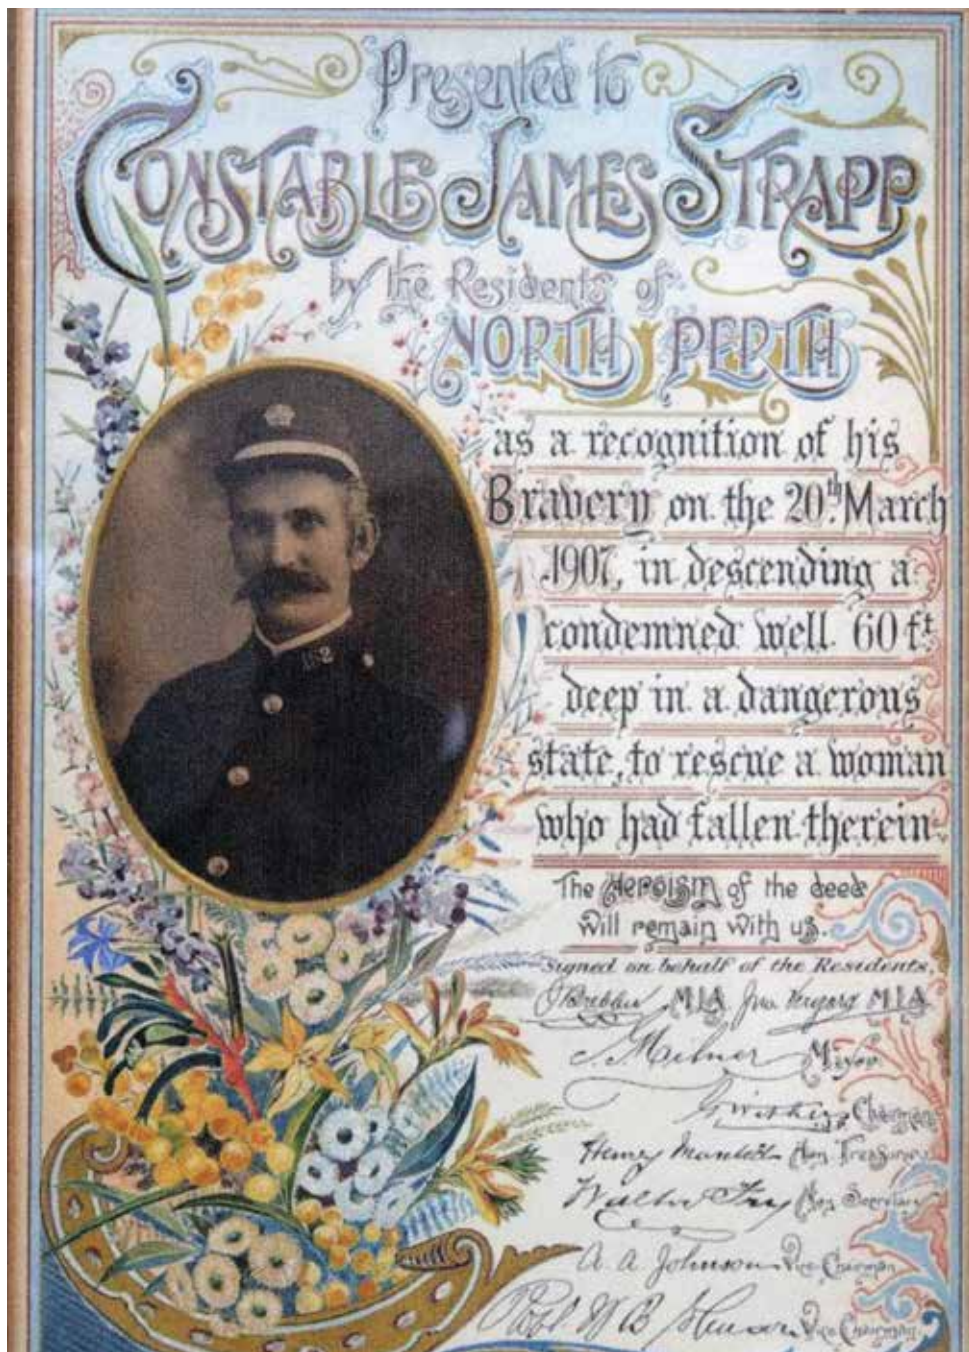 Presented to
CONSTABLE JAMES STRAPP
by the Residents of
NORTH PERTH
as a recognition of his
Bravery on the 20th March
1907, in descending a
condemned well 60 ft
deep in a dangerous
state, to rescue a woman
who had fallen therein
The Heroism of the deed
will remain with us.
Signed on behalf of the Residents,
MLA Jno. MLA
J. Milner Mayor
Chairman
Henry Hon Treasurer
Walter Fry Hon Secretary
A. A. Johnson Vice Chairman
Robt W B Vice Chairman
182